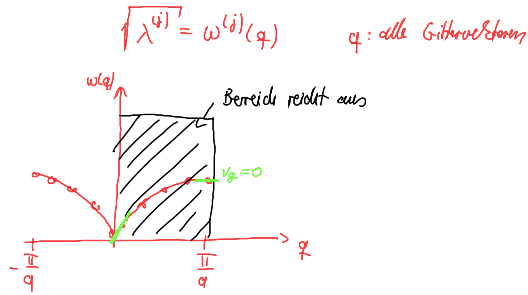 √λ^(j) = ω^(j)(q)    q: alle Gittervektoren
ω(q)
Bereich reicht aus
v_g = 0
-π/a    π/a    q